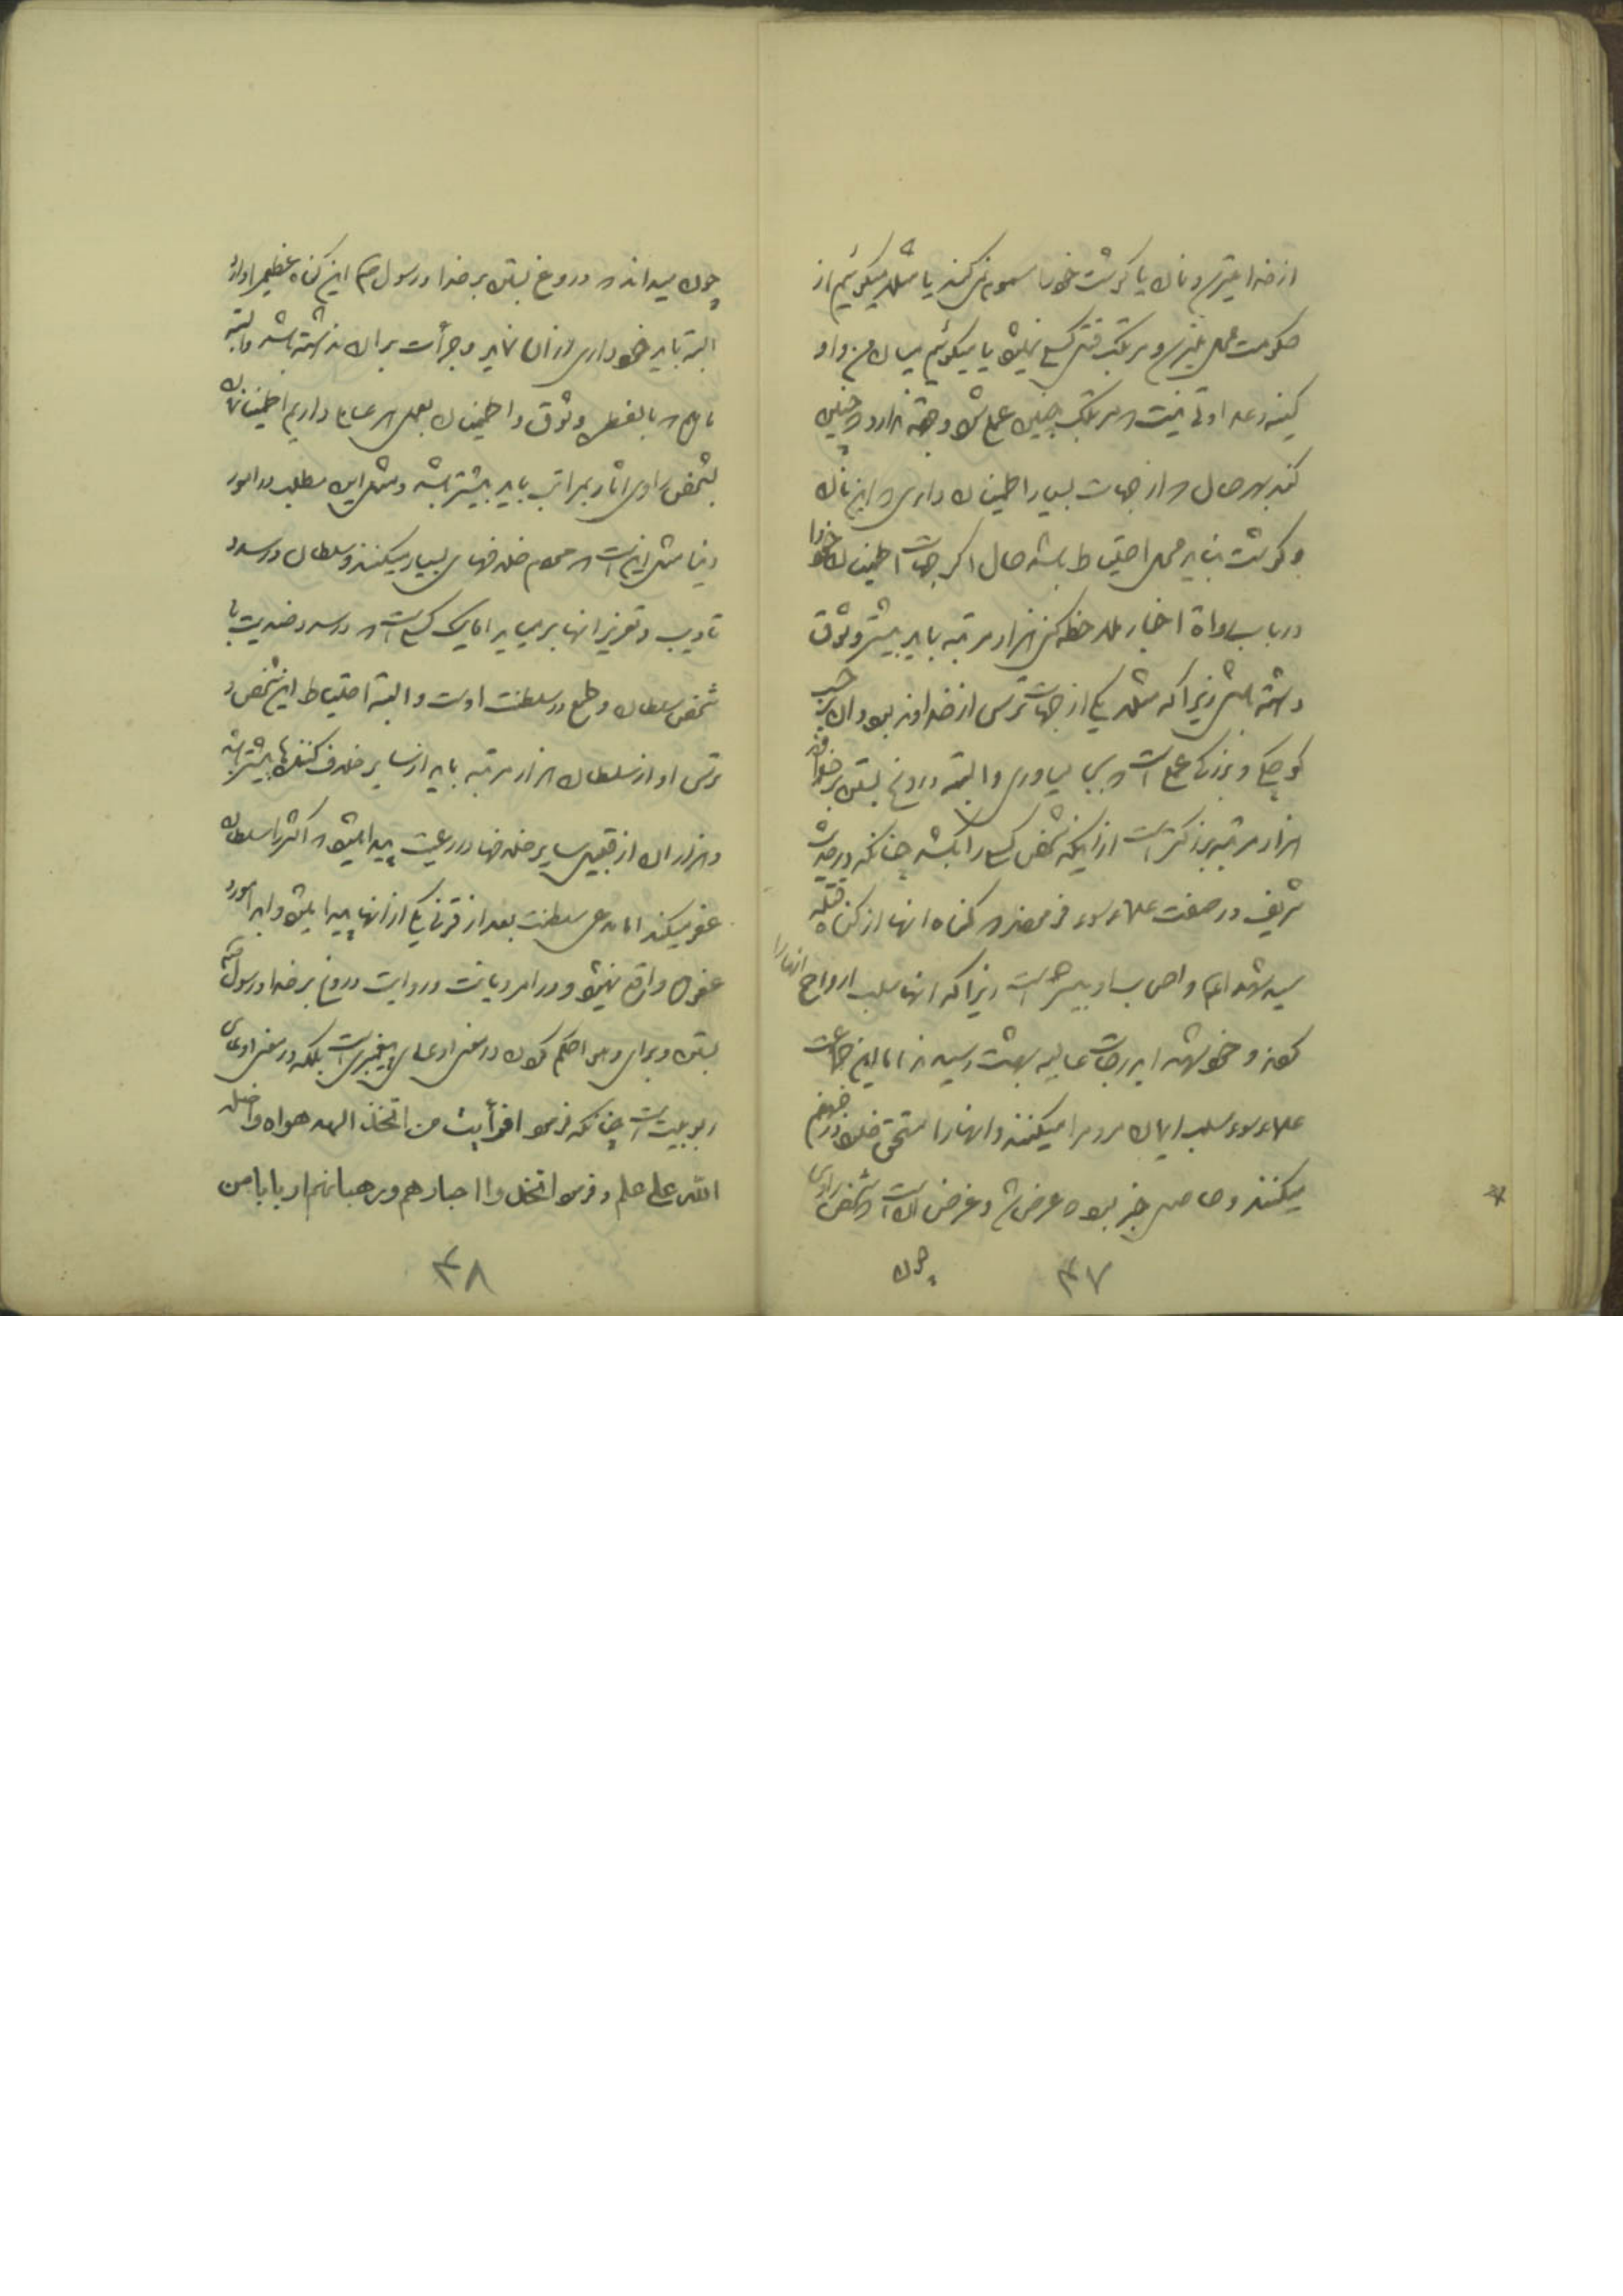 از خدا میترسد و نان یا گوشت خود را مسموم نمی کند یا مثلا میگوئیم از
حکومت محل میترسد و مرتکب قتل کسی نمیشود یا میگوئیم میان من و او
کینه و عداوتی نیست که مرتکب چنین عملی شود و جهة ندارد که چنین
کند بهر حال که از جهات بسیار اطمینان داری که این نان
و گوشت نباید محل احتیاط باشد حال اگر جهات اطمینان خود را
در باب رواة اخبار ملاحظه کنی هزار مرتبه باید بیشتر وثوق
داشته باشی زیرا که مثلا یکی از جهات ترس از خداوند بود و آن بر حسب
کوچکی و بزرگی عمل است که بجا بیاوری و البته دروغ بستن بر خداوند
هزار مرتبه بزرگتر است از اینکه شخص کسی را بکشد چنانکه در حدیث
شریف در صفت علماء سوء فرموده اند که گناه آنها از گناه قتله
سید شهداء و اصحاب او بیشتر است زیرا که آنها سلب ارواح آنها را
کردند و خود شهدا بدرجات عالیه بهشت رسیدند اما این جماعت
علماء سوء سلب ایمان مردم را میکنند و آنها را مستحق خلود در جهنم
میکنند و حاصل خبر بود که عرض شد و غرض آن است که شخص راوی
چون
۴۷
چون میداند که دروغ بستن بر خدا و رسول ص این گناه عظیم را دارد
البته باید خودداری از آن نماید و جرأت بر آن نداشته باشد و البته
ما هم که بالفعل وثوق و اطمینان بعمل هر عامی داریم اطمینانمان
بشخص راوی آثار بمراتب باید بیشتر باشد و مثل این مطلب در امور
دنیا مثل این است که عوام خلافهای بسیار میکنند و سلطان در صدد
تادیب و تعزیر آنها بر میاید اما یک کسی است که در صدد ضدیت با
شخص سلطان و طمع در سلطنت اوست و البته احتیاط این شخص و
ترس او از سلطان هزار مرتبه باید از سایر خلاف کننده ها بیشتر باشد
و هزاران از قبیل سایر خلافها در رعیت پیدا میشود که اکثر را سلطان
عفو میکند اما مدعی سلطنت بعد از قرنی یکی از آنها پیدا میشود و ابدا مورد
عفو هم واقع نمیشود و در امر دیانت و روایت دروغ بر خدا و رسول ص
بستن و برای و هوا حکم کردن در معنی ادعای پیغمبری است بلکه در معنی ادعای
ربوبیت است چنانکه فرمود افرأیت من اتخذ الهه هواه و اضله
الله علی علم و فرمود اتخذوا احبارهم ورهبانهم اربابا من
۴۸